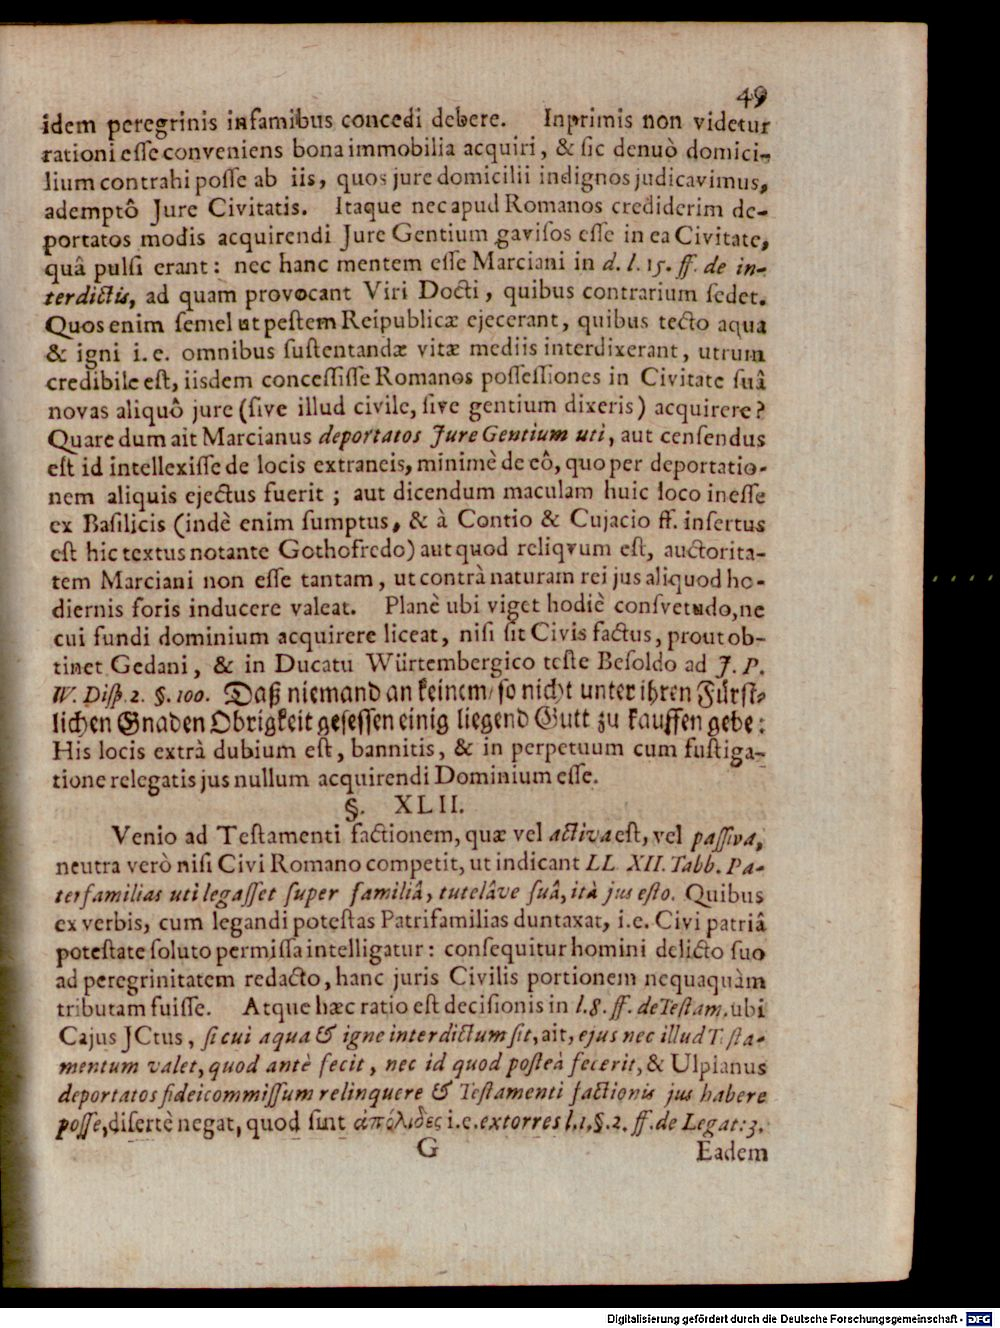 49
idem peregrinis infamibus concedi debere. Inprimis non videtur
rationi esse conveniens bona immobilia acquiri, & sic denuò domici-
lium contrahi posse ab iis, quos jure domicilii indignos judicavimus,
ademptô Jure Civitatis. Itaque nec apud Romanos crediderim de-
portatos modis acquirendi Jure Gentium gavisos esse in ea Civitate,
quâ pulsi erant: nec hanc mentem esse Marciani in d. l. 15. ff. de in-
terdictis, ad quam provocant Viri Docti, quibus contrarium sedet.
Quos enim semel ut pestem Reipublicæ ejecerant, quibus tecto aqua
& igni i. e. omnibus sustentandæ vitæ mediis interdixerant, utrum
credibile est, iisdem concessisse Romanos possessiones in Civitate suâ
novas aliquô jure (sive illud civile, sive gentium dixeris) acquirere?
Quare dum ait Marcianus deportatos Jure Gentium uti, aut censendus
est id intellexisse de locis extraneis, minimè de eô, quo per deportatio-
nem aliquis ejectus fuerit; aut dicendum maculam huic loco inesse
ex Basilicis (indè enim sumptus, & à Contio & Cujacio ff. insertus
est hic textus notante Gothofredo) aut quod reliqvum est, auctorita-
tem Marciani non esse tantam, ut contrà naturam rei jus aliquod ho-
diernis foris inducere valeat. Planè ubi viget hodiè consvetudo, ne
cui fundi dominium acquirere liceat, nisi sit Civis factus, prout ob-
tinet Gedani, & in Ducatu Würtembergico teste Besoldo ad J. P.
W. Disp. 2. §. 100. Daß niemand an keinem/ so nicht unter ihren Fürst-
lichen Gnaden Obrigkeit gesessen einig liegend Gutt zu kauffen gebe:
His locis extrà dubium est, bannitis, & in perpetuum cum fustiga-
tione relegatis jus nullum acquirendi Dominium esse.
§. XLII.
Venio ad Testamenti factionem, quæ vel activa est, vel passiva,
neutra verò nisi Civi Romano competit, ut indicant LL. XII. Tabb. Pa-
terfamilias uti legasset super familiâ, tutelâve suâ, ità jus esto. Quibus
ex verbis, cum legandi potestas Patrifamilias duntaxat, i.e. Civi patriâ
potestate soluto permissa intelligatur: consequitur homini delicto suo
ad peregrinitatem redacto, hanc juris Civilis portionem nequaquàm
tributam fuisse. Atque hæc ratio est decisionis in l. 8. ff. de Testam. ubi
Cajus JCtus, si cui aqua & igne interdictum sit, ait, ejus nec illud Testa-
mentum valet, quod antè fecit, nec id quod posteà fecerit, & Ulpianus
deportatos fideicommissum relinquere & Testamenti factionis jus habere
posse, disertè negat, quod sint ἀπόλιδες i.e. extorres l. 1. §. 2. ff. de Legat: 3.
G Eadem
Digitalisierung gefördert durch die Deutsche Forschungsgemeinschaft - DFG